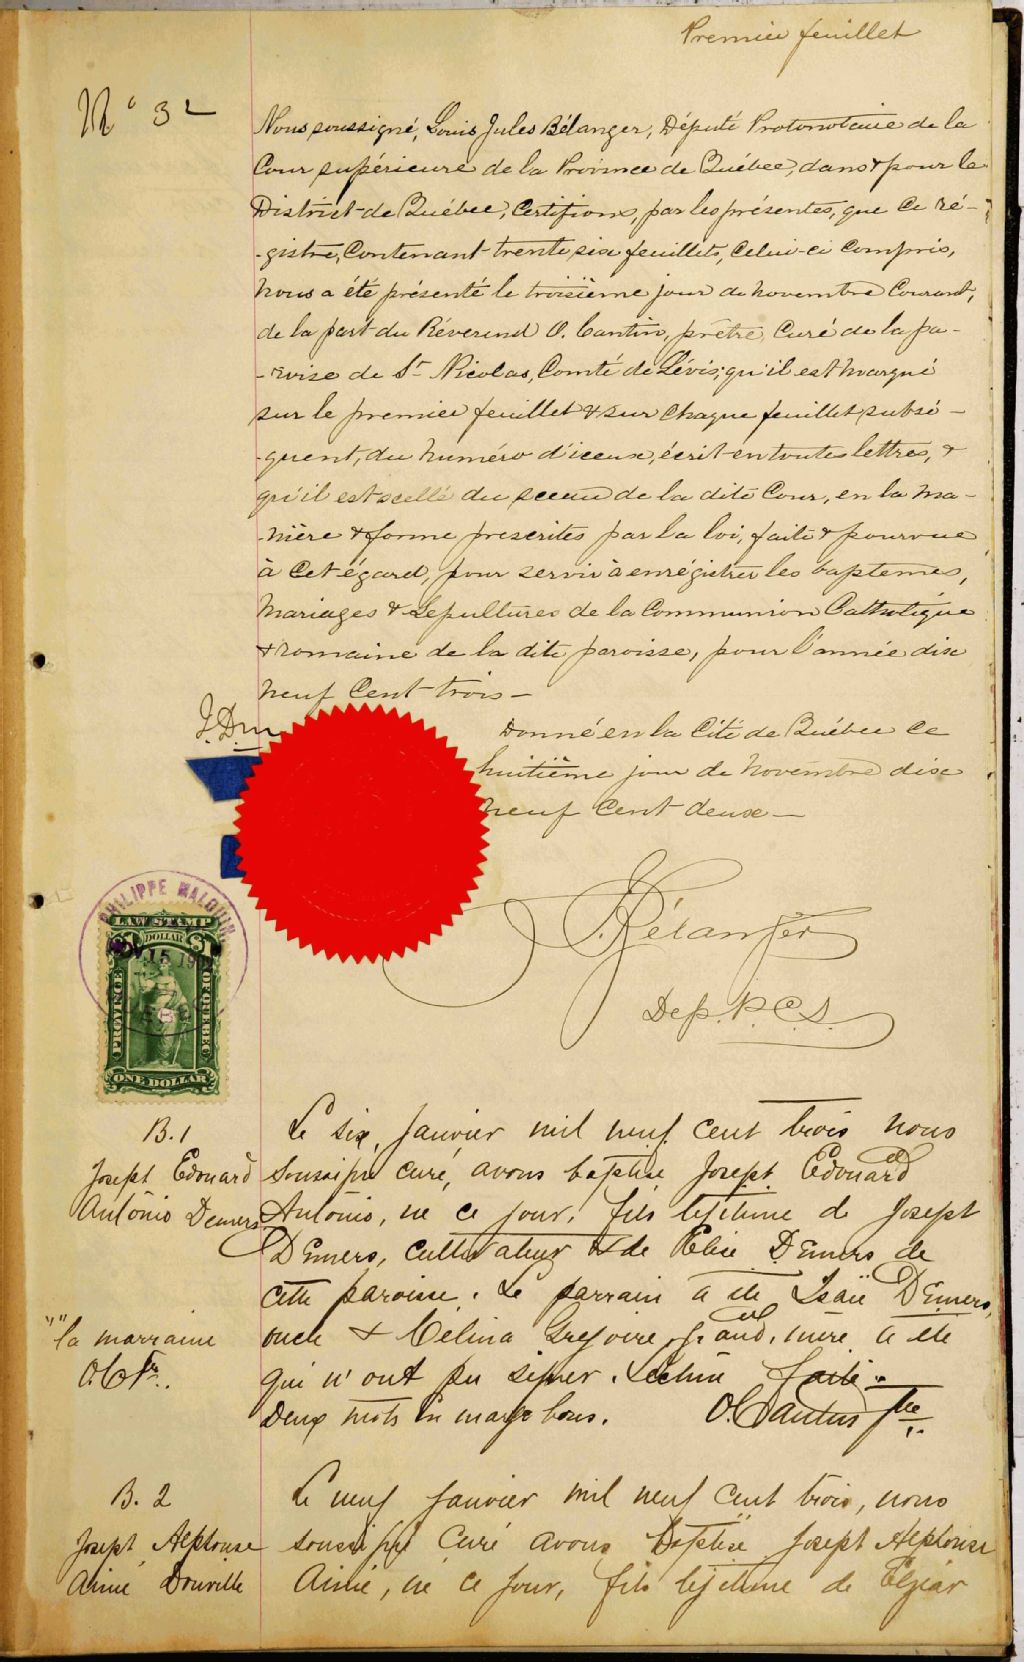 Premier feuillet
No 32
Nous soussigné, Louis Jules Bélanger, Député Protonotaire de la
Cour supérieure de la Province de Québec, dans & pour le
District de Québec, Certifions, par les présentes, que ce ré-
-gistre, Contenant trente six feuillets, celui-ci compris,
nous a été présenté le troisième jour de novembre courant,
de la part du Révérend O. Cantin, prêtre, curé de la pa-
-roisse de St Nicolas, Comté de Lévis; qu'il est marqué
sur le premier feuillet & sur chaque feuillet subsé-
-quent, du numéro d'iceux, écrit en toutes lettres, &
qu'il est scellé du sceau de la dite Cour, en la ma-
-nière & forme prescrites par la loi, faite & pourvue
à cet égard, pour servir à enrégistrer les baptemes,
mariages & Sepultures de la Communion Catholique
& romaine de la dite paroisse, pour l'année dix
neuf cent trois -
J. Dm
Donné en la Cité de Québec ce
huitième jour de novembre dix
neuf cent deux -
Bélanger
Dep. P.C.S.
PHILIPPE MALOUIN
LAW STAMP
$1 DOLLAR $1
15 190
PROVINCE OF QUEBEC
ONE DOLLAR
B.1
Joseph Edouard
Antonio Demers
Le six, Janvier mil neuf cent trois nous
soussigné curé, avons baptisé Joseph Edouard
Antonio, né ce jour, fils legitime de Joseph
Demers, cultivateur & de Elise Demers de
cette paroisse. Le parrain a été Isaïe Demers,
oncle & Celina Gregoire, grand, mère a été
qui n'ont pu signer. Lecture faite.
Deux mots en marge bons. O. Cantin Ptre
"" la marraine
O.C. Ptr.
B. 2
Joseph Alphonse
Aimé Douville
Le neuf Janvier mil neuf cent trois, nous
soussigné Curé avons baptisé Joseph Alphonse
Aimé, né ce jour, fils legitime de Elzéar